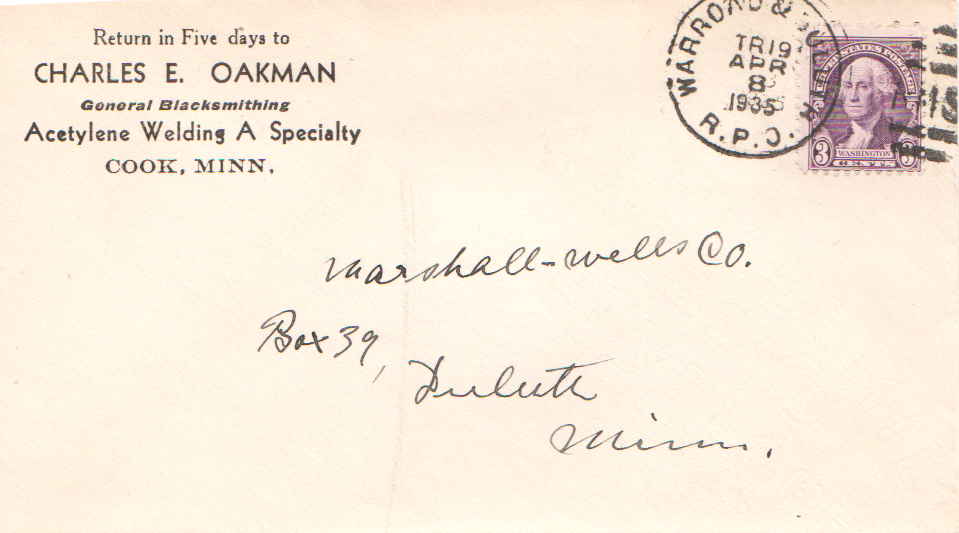 Return in Five days to
CHARLES E. OAKMAN
General Blacksmithing
Acetylene Welding A Specialty
COOK, MINN.
WARROAD &
TR19
APR
8
1935
R.P.O.
UNITED STATES POSTAGE
WASHINGTON
3
3
Marshall-Wells Co.
Box 39,
Duluth
Minn.